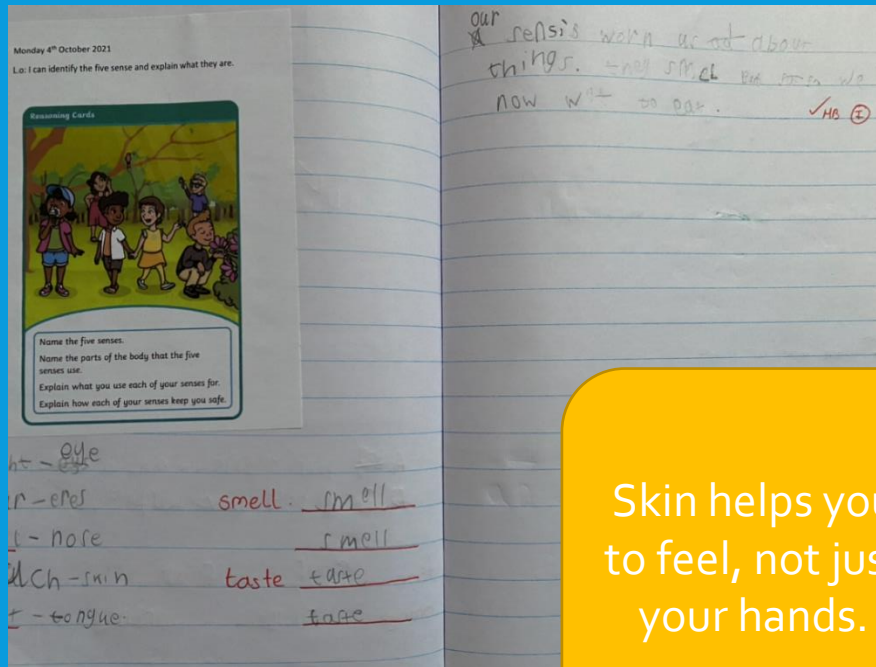 Monday 4th October 2021
L.o: I can identify the five sense and explain what they are.
Reasoning Cards
Name the five senses.
Name the parts of the body that the five
senses use.
Explain what you use each of your senses for.
Explain how each of your senses keep you safe.
ht - eye
r - eres
smell. smell
- nose
smell
uch - skin
taste taste
t - tongue.
taste
our
sensis worn us about
things. smel we
now to eat.
✓HB I
Skin helps you
to feel, not jus
your hands.